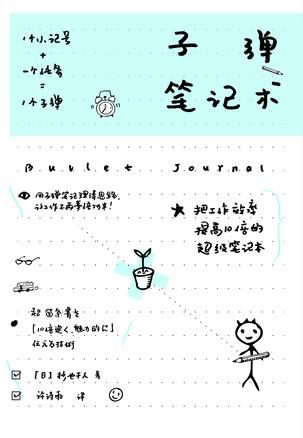 1个小记号
+
一个任务
=
1个子弹
子弹
笔记术
Bullet Journal
用子弹笔记理清思路,
让工作不再事倍功半!
★ 把工作效率
提高10倍的
超级笔记本
超 箇条書き
「10倍速く、魅力的に」
伝える技術
[日] 杉野干人 著
许诗雨 译